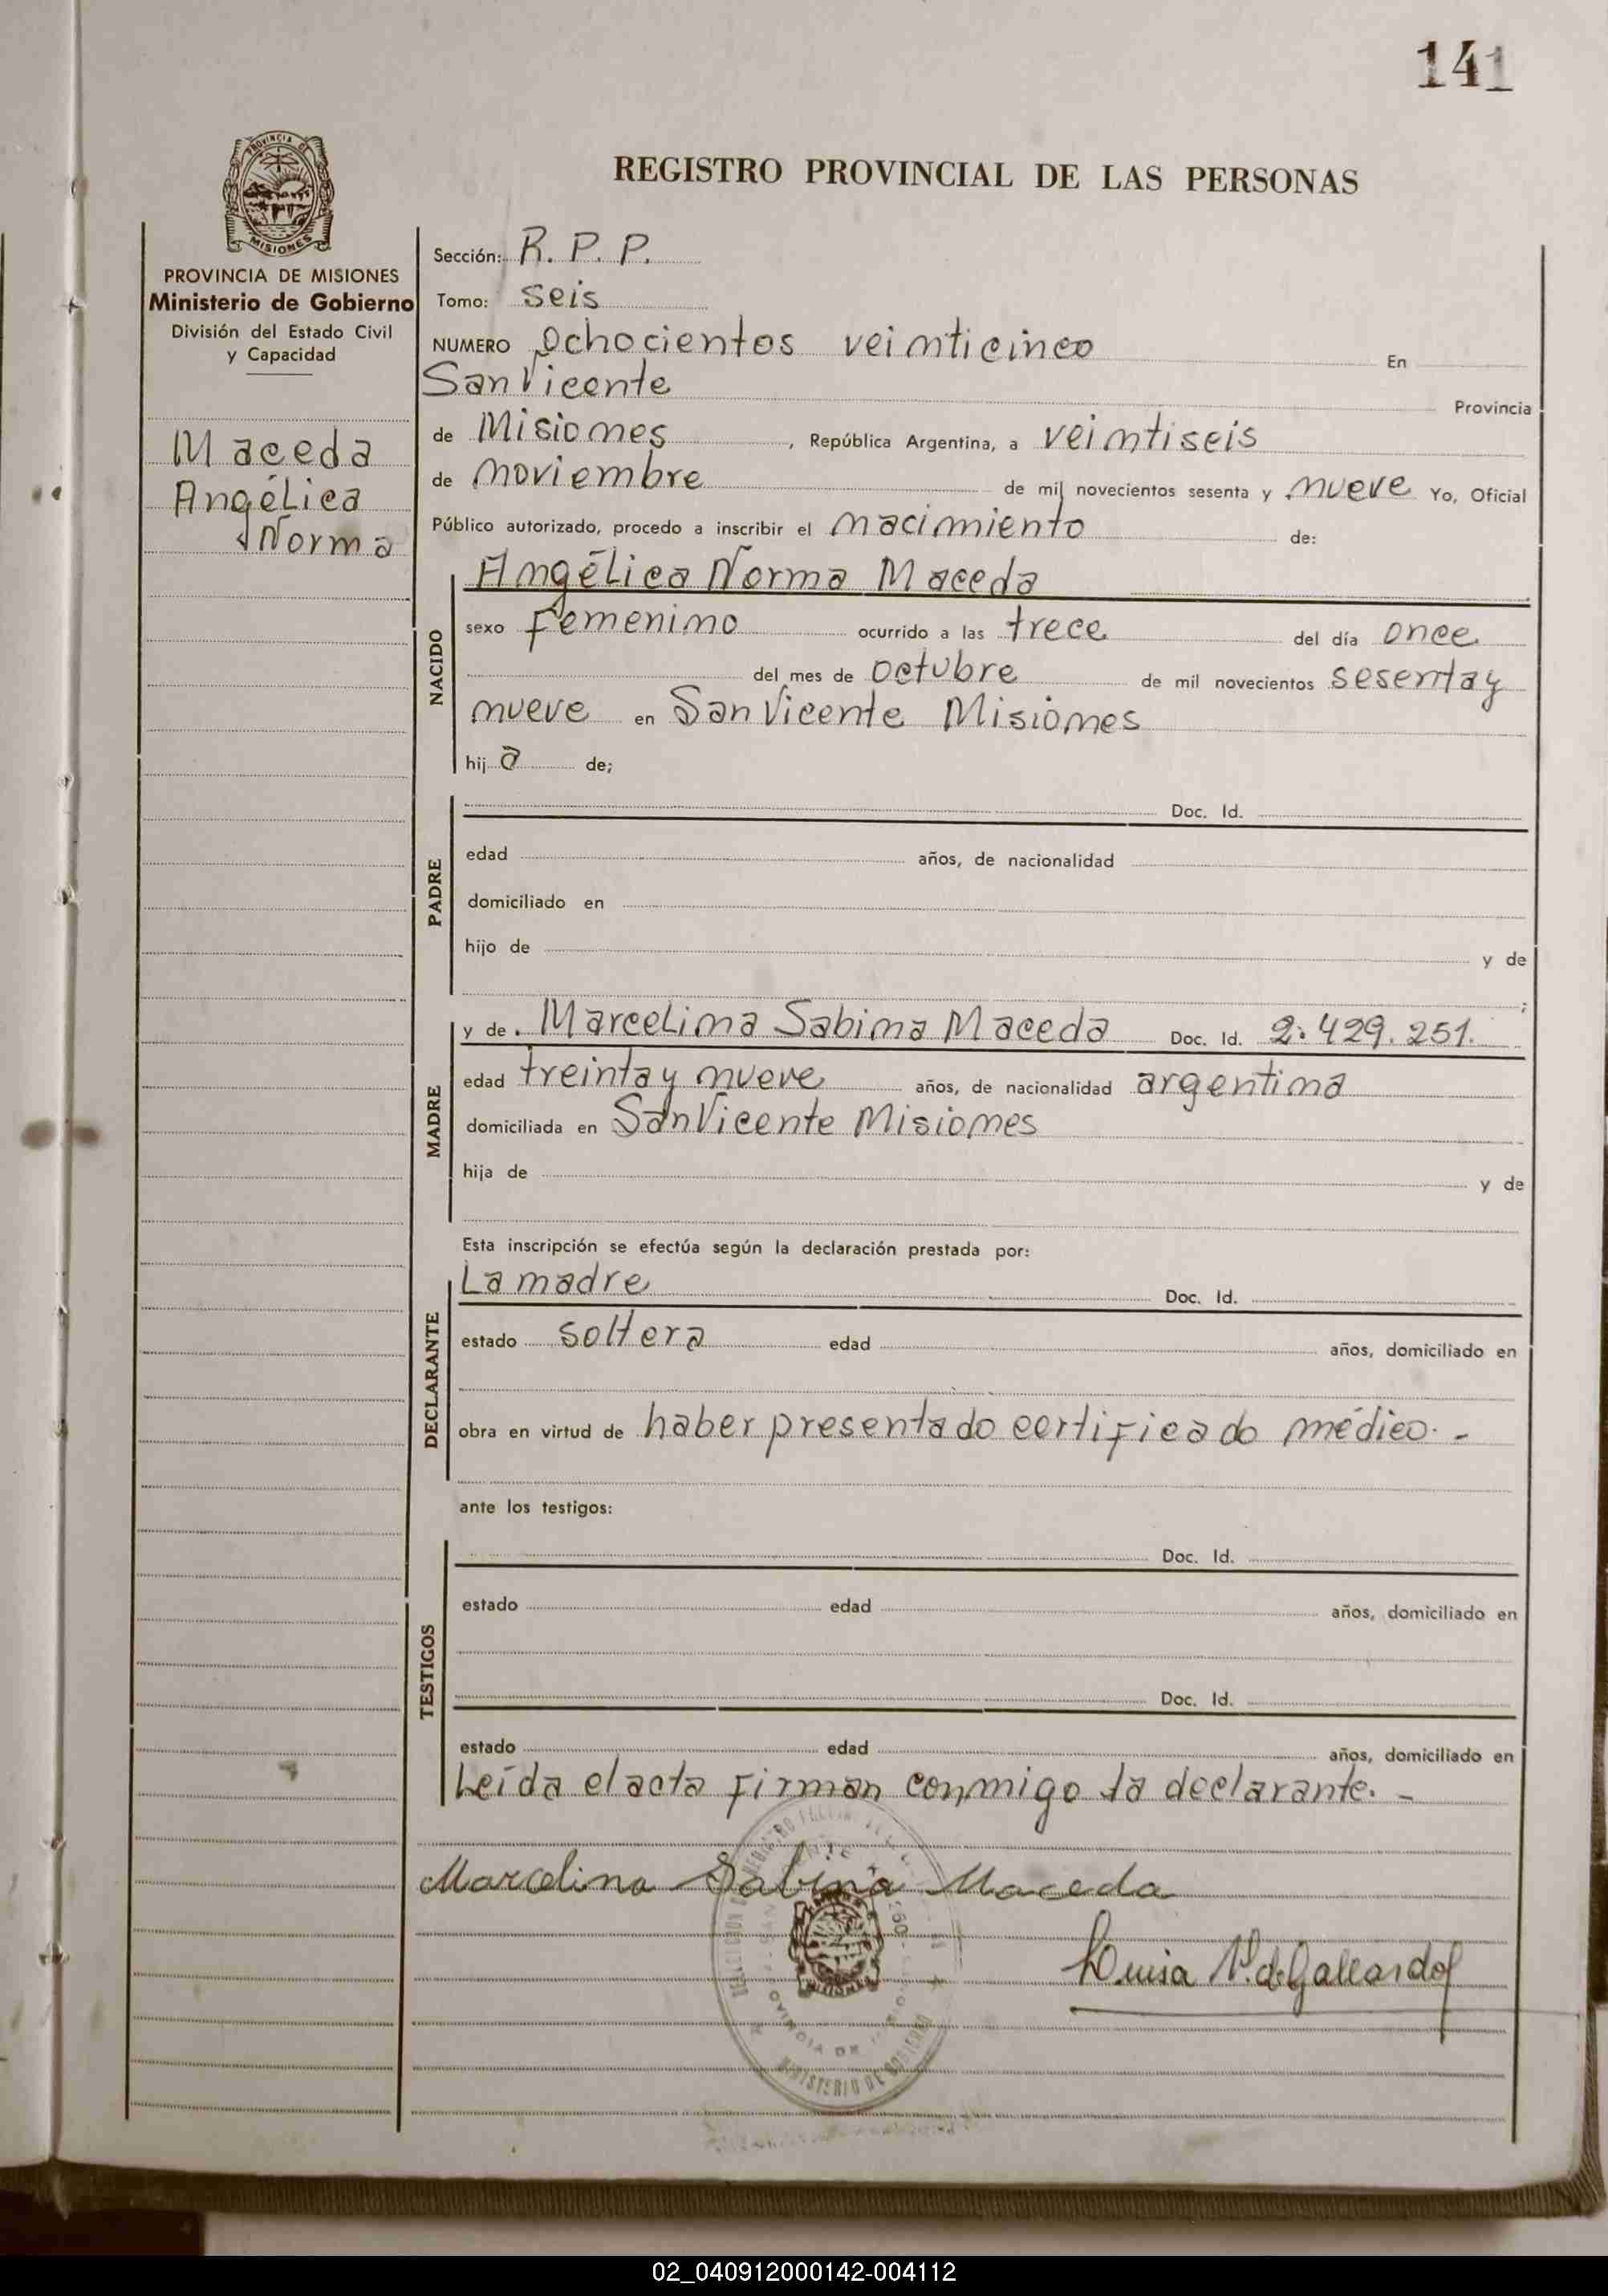 141
PROVINCIA DE
MISIONES
REGISTRO PROVINCIAL DE LAS PERSONAS
PROVINCIA DE MISIONES
Ministerio de Gobierno
División del Estado Civil
y Capacidad
Maceda
Angélica
Norma
Sección: R. P. P.
Tomo: seis
NUMERO Ochocientos veinticinco En
San Vicente Provincia
de Misiones, República Argentina, a veintiseis
de noviembre de mil novecientos sesenta y nueve Yo, Oficial
Público autorizado, procedo a inscribir el nacimiento de:
NACIDO
Angélica Norma Maceda
sexo femenino ocurrido a las trece del día once
del mes de octubre de mil novecientos sesenta y
nueve en San Vicente Misiones
hija de;
PADRE
Doc. Id.
edad años, de nacionalidad
domiciliado en
hijo de y de
;
MADRE
y de Marcelina Sabina Maceda Doc. Id. 2.429.251.
edad treinta y nueve años, de nacionalidad argentina
domiciliada en San Vicente Misiones
hija de y de
Esta inscripción se efectúa según la declaración prestada por:
DECLARANTE
La madre Doc. Id.
estado soltera edad años, domiciliado en
obra en virtud de haber presentado certificado médico. -
ante los testigos:
TESTIGOS
Doc. Id.
estado edad años, domiciliado en
Doc. Id.
estado edad años, domiciliado en
Leída el acta firman conmigo la declarante. -
Marcelina Sabina Maceda
Luisa V. de Gallardo
MINISTERIO DE GOBIERNO
02_040912000142-004112